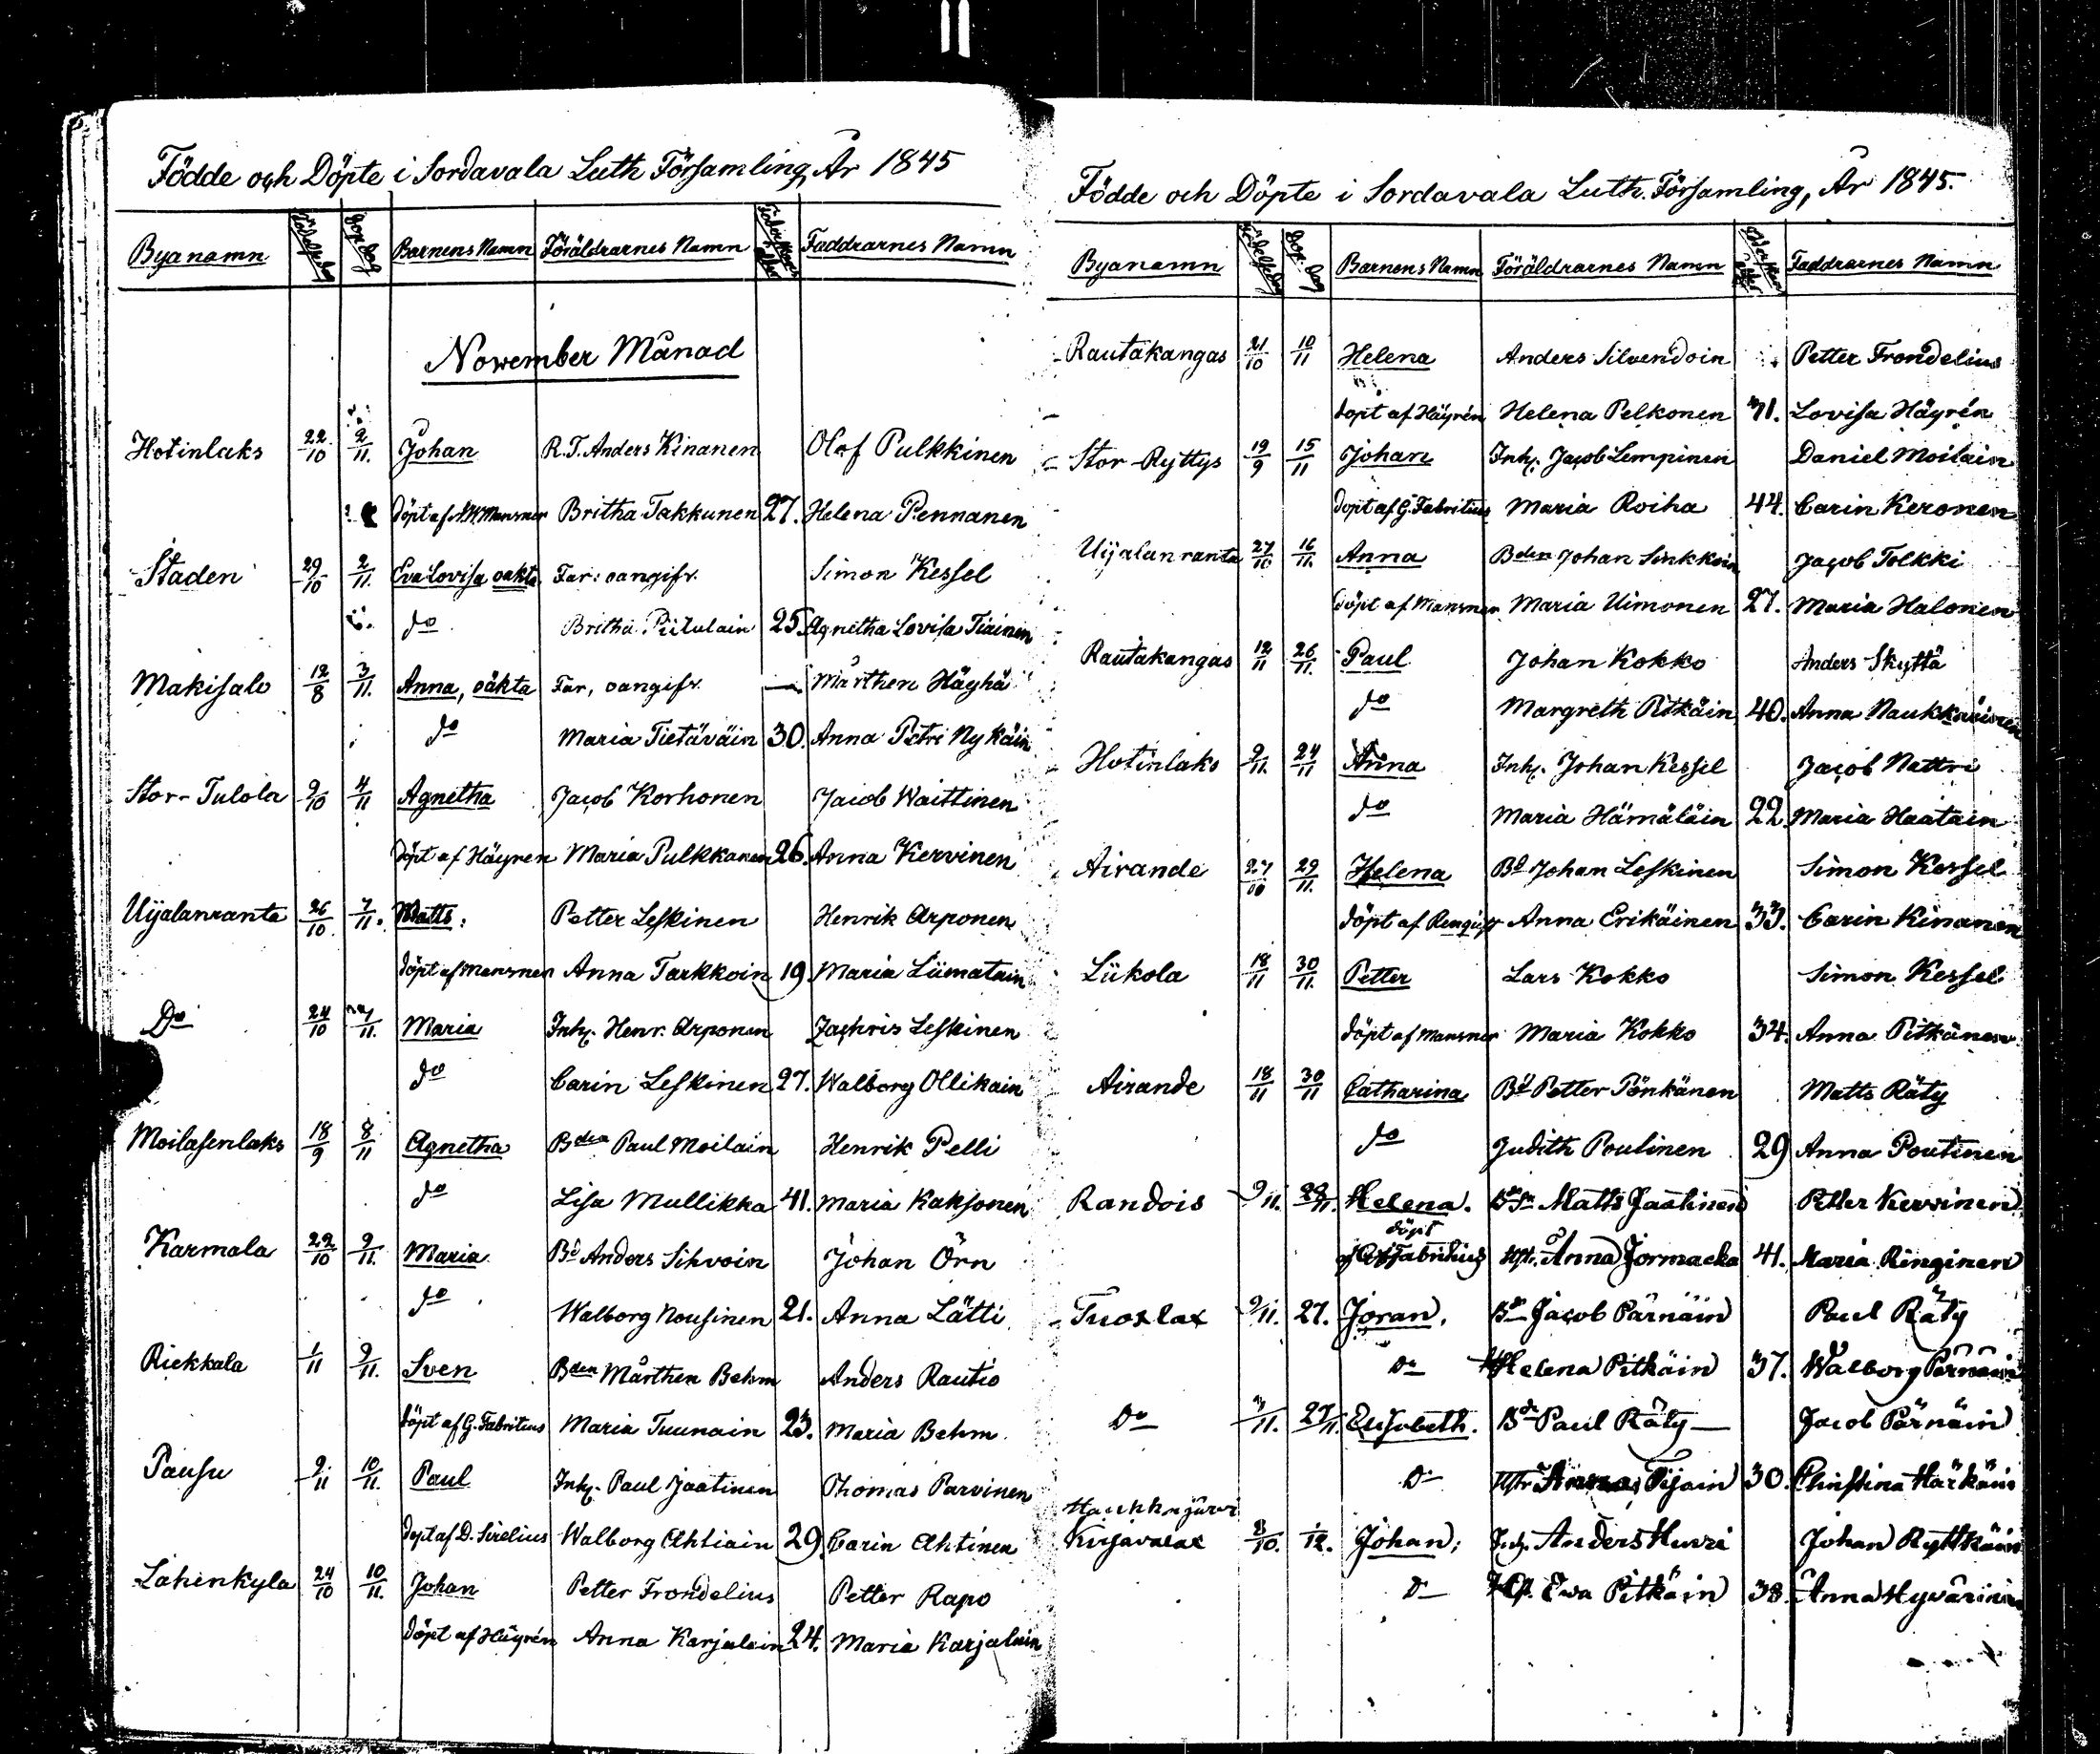 Födde och Döpte i Sordavala Luth Församling, År 1845
Byanamn Födelsedag Dop dag Barnens Namn Föräldrarnes Namn Faddrarnes Namn
November Månad
Hotinlaks 22/10 2/11. Johan R.T. Anders Kinanen Olof Pulkkinen
döpt af Mansner Britha Takkunen 27. Helena Pennanen
Staden 29/10 2/11. Eva Lovisa oäkta Far: oangifv. Simon Kessel
do Britha Piitulain 25. Agnetha Lovisa Tiainen
Makisalo 12/8 3/11. Anna, oäkta Far, oangifv. — Mårthen Häyhä
do Maria Tietäväin 30. Anna Petri Nykäin
Stor-Tulola 9/10 4/11 Agnetha Jacob Korhonen Jacob Waittinen
döpt af Häyren Maria Pulkkanen 26. Anna Kervinen
Uijalanranta 26/10 7/11. Matts: Petter Leskinen Henrik Arponen
döpt af Mansner Anna Tarkkoin 19 Maria Liimatain
Do 24/10 7/11. Maria Inh. Henr. Arponen Zachris Leskinen
do Carin Leskinen 27. Walborg Ollikain
Moilasenlaks 18/9 8/11 Agnetha Bden Paul Moilain Henrik Pelli
do Lisa Mullikka 41. Maria Kaksonen
Karmala 22/10 9/11. Maria Bd Anders Sihvoin Johan Örn
do Walborg Nousinen 21. Anna Lätti
Riekkala 1/11 9/11. Sven Bden Mårthen Behm Anders Rautio
döpt af G. Fabritius Maria Tuunain 23. Maria Behm
Pausu 9/11 10/11. Paul Inh. Paul Jaatinen Thomas Parvinen
döpt af D. Sirelius Walborg Ahtiain 29. Carin Ahtinen
Lahenkyla 24/10 10/11. Johan Petter Frondelius Petter Rapo
döpt af Häyrén Anna Karjalain 24. Maria Karjalain
Födde och Döpte i Sordavala Luth. Församling, År 1845.
Byanamn Födelsedag Dop. dag Barnens Namn Föräldrarnes Namn Faddrarnes Namn
Rautakangas 21/10 10/11 Helena Anders Silvendoin Petter Frondelius
döpt af Häyrén Helena Pelkonen 41. Lovisa Häyrén
Stor-Ryttys 19/9 15/11 Johan Inh. Jacob Lempinen Daniel Moilain
döpt af G. Fabritius Maria Roiha 44. Carin Keronen
Uijalanranta 27/10 16/11. Anna Bden Johan Sinkkoin Jacob Tolkki
döpt af Mansner Maria Uimonen 27. Maria Halonen
Rautakangas 12/11 26/11. Paul Johan Kokko Anders Skyttä
do Margreth Pitkäin 40. Anna Naukkarinen
Hotinlaks 9/11. 24/11 Anna Inh. Johan Kessel Jacob Nattri
do Maria Hämäläin 22 Maria Haatain
Airande 27/10 29/11. Helena Bd Johan Leskinen Simon Kessel
döpt af Anna Erikäinen 33. Carin Kinanen
Liikola 18/11 30/11. Petter Lars Kokko Simon Kessel
döpt af Mansner Maria Kokko 34. Anna Pitkänen
Airande 18/11 30/11 Catharina Bd Petter Pönkänen Matts Räty
do Judith Poutinen 29 Anna Poutinen
Randois 9/11. 28/11. Helena. Matts Jaatinen Petter Kervinen
döpt
af Fabritius Anna Jormacka 41. Maria Ringinen
Tuoslax 9/11. 27. Joran. Bdn Jacob Pärnäin Paul Räty
Do Helena Pitkäin 37. Walborg Pärnäin
Do 3/11. 27/11. Elisabeth. Bdn Paul Räty — Jacob Pärnäin
Do Anna Pijain 30. Christina Härkäin
Haukkajärvi
8/10. 1/12. Johan; Inh. Anders Hurri Johan Ryttkäin
D Ewa Pitkäin 38. Anna Hyvärinen